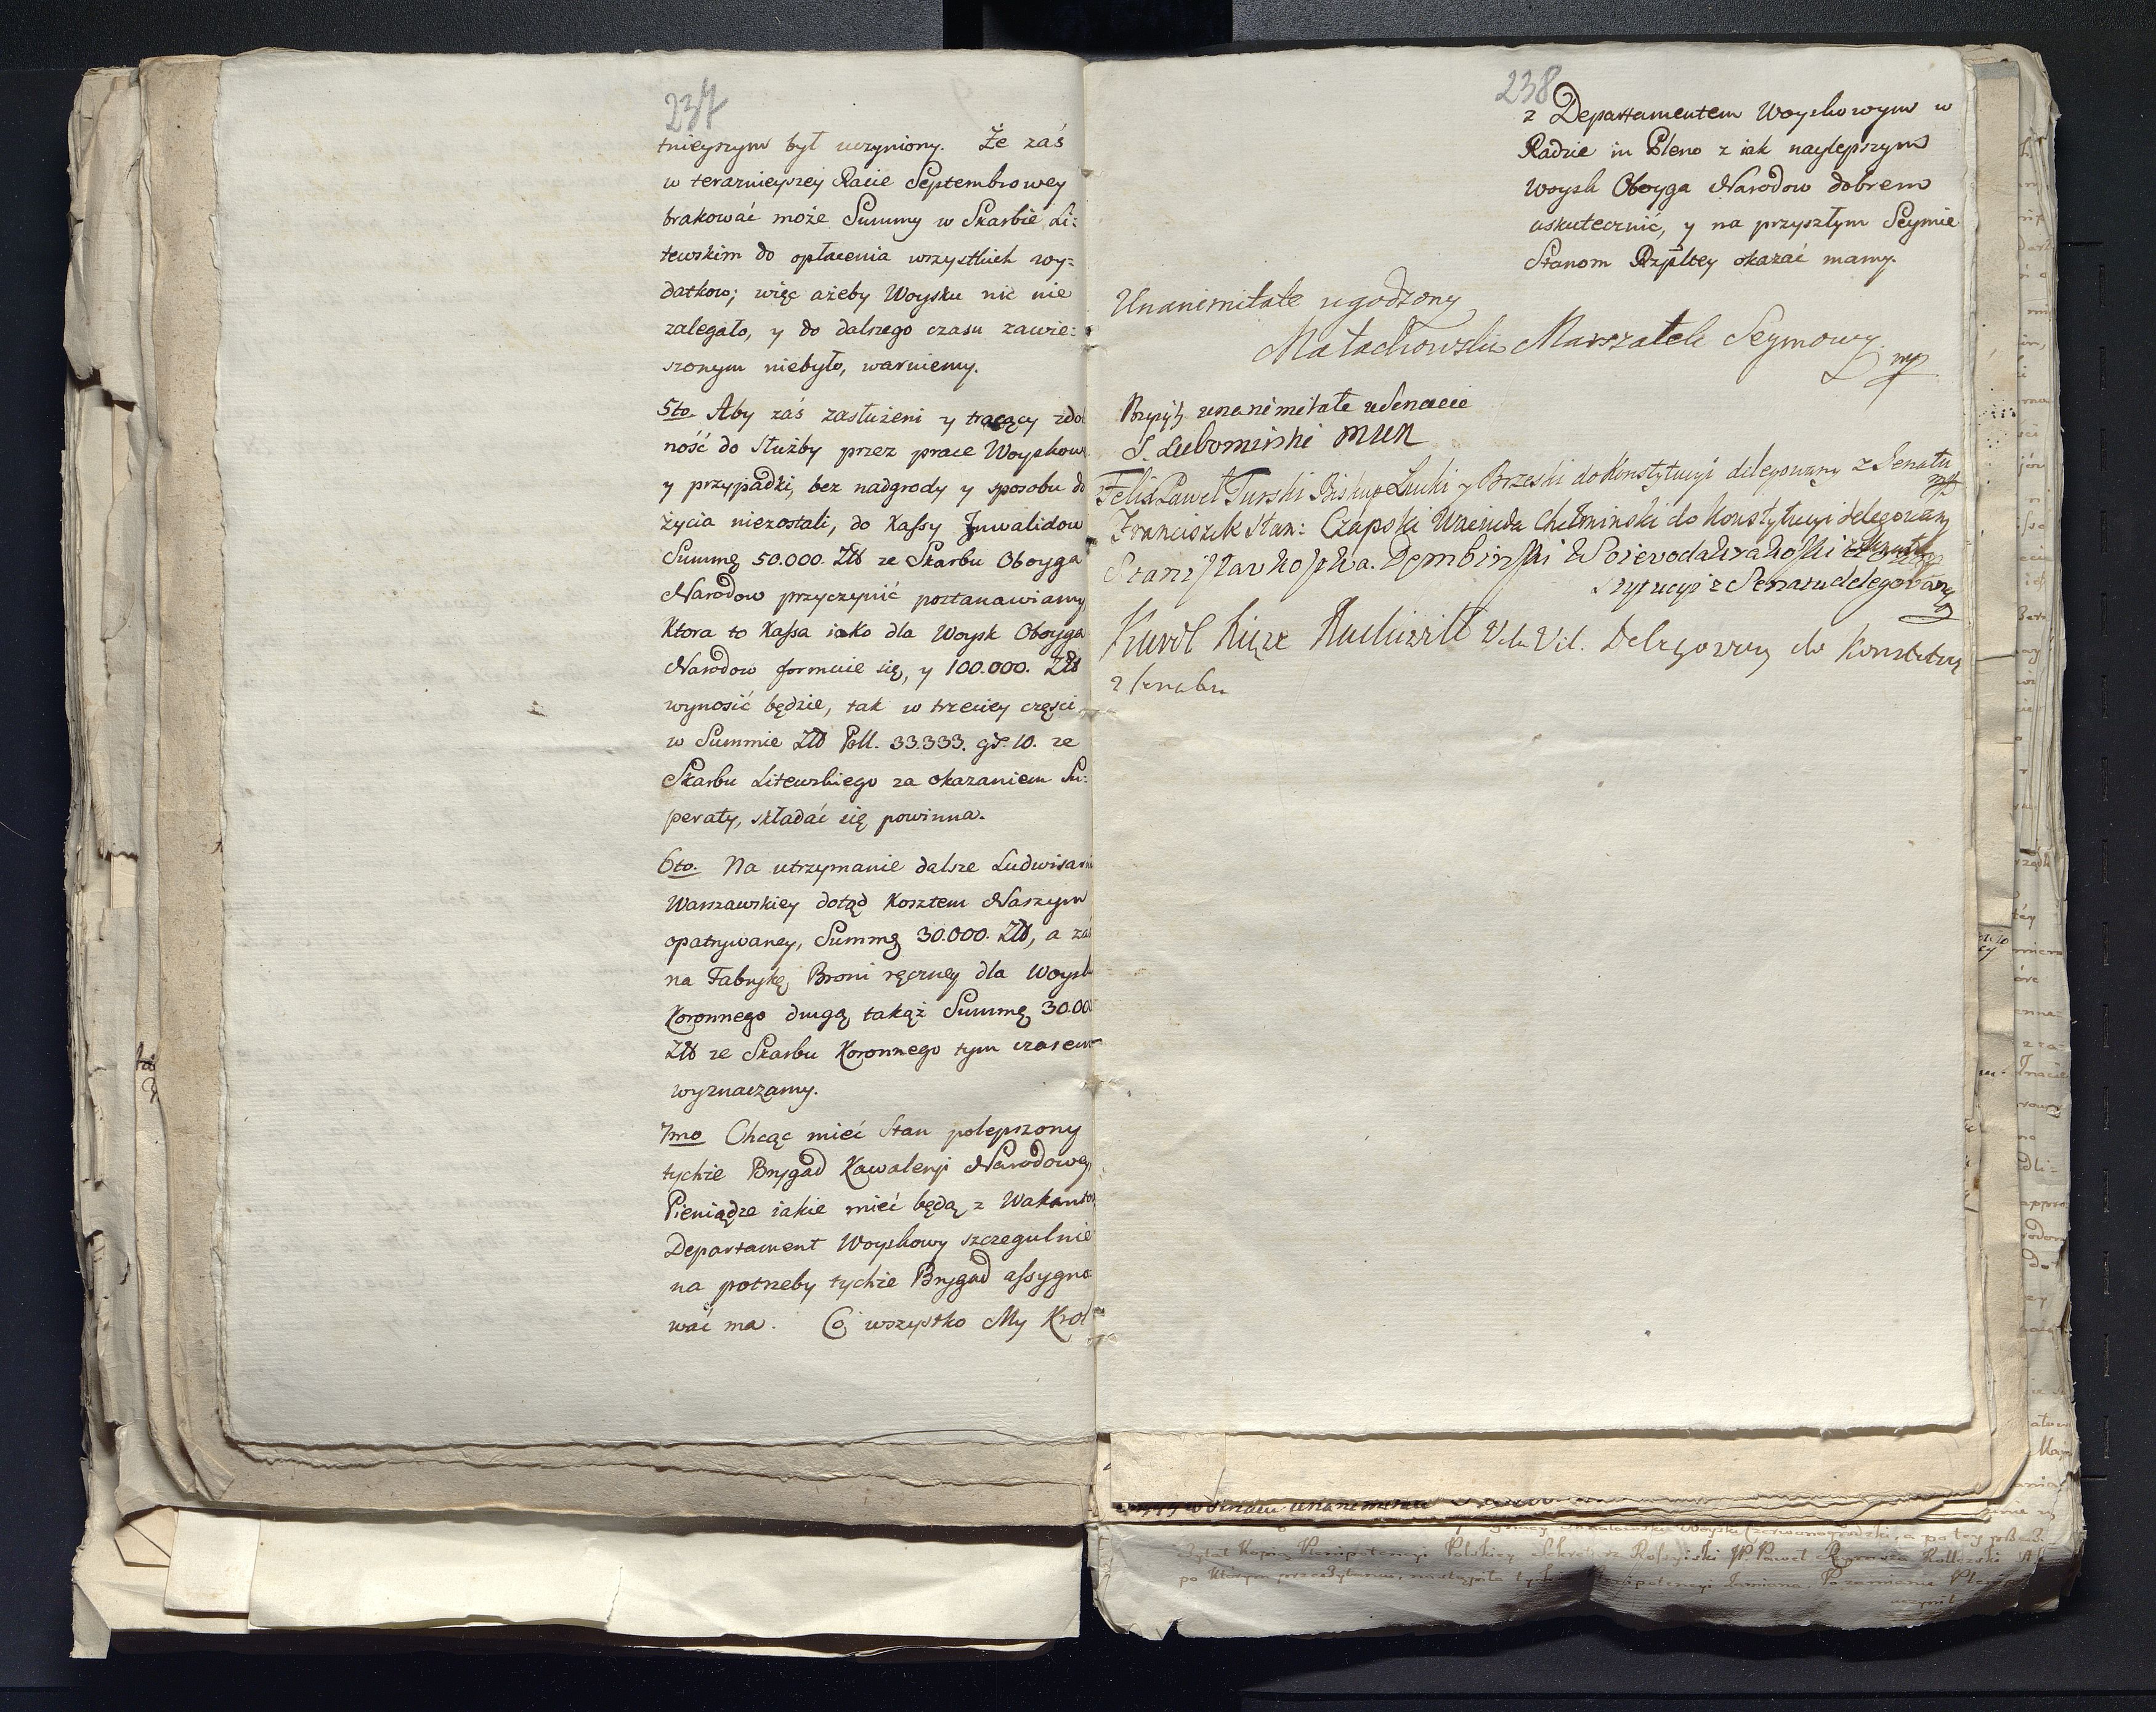 237
tnieyszym był uczyniony. Że zaś
w teraznieyszey Racie Septembrowey
brakować może Summy w Skarbie Li=
tewskim do opłacenia wszystkich wy=
datkow; więc ażeby Woysku nic nie
zalegało, y do dalszego czasu zawie=
szonym niebyło, waruiemy.
5to. Aby zaś zasłużeni y tracący zdol
ność do służby przez prace Woyskow
y przypadki, bez nadgrody y sposobu do
życia niezostali, do Kassy Inwalidow
Summę 50.000. Złł ze Skarbu Oboyga
Narodow przyczynić postanawiamy
Ktora to Kassa iako dla Woysk Oboyga
Narodow formuie się, y 100.000. Złł
wynosić będzie, tak w trzeciey części
w Summie Złł Poll. 33.333. gr. 10. ze
Skarbu Litewskiego za okazaniem Su=
peraty, składać się powinna.
6to. Na utrzymanie dalsze Ludwisarni
Warszawskiey dotąd Kosztem Naszym
opatrywaney, Summę 30.000. Złł, a zaś
na Fabrykę Broni ręczney dla Woysk
Koronnego drugą takąż Summę 30.00
Złł ze Skarbu Koronnego tym czasem
wyznaczamy.
7mo Chcąc mieć Stan polepszony
tychże Brygad Kawaleryi Narodowey,
Pieniądze iakie mieć będą z Wakansow
Departament Woyskowy szczegulnie
na potrzeby tychże Brygad assygno
wać ma. Co wszystko My Krol
238
z Departamentem Woyskowym w
Radzie in Pleno z iak naylepszym
Woysk Oboyga Narodow dobrem
uskutecznić, y na przyszłym Seymie
Stanom Rzpltey okazać mamy.
Unanimitate zgodzony
Małachowski Marszałek Seymowy
mp
Przyięty unanimitate w Senacie
S. Lubomirski MWK
Felix Paweł Turski Biskup Łucki y Brzeski do Konstytucyi delegowany z Senatu
mp
Franciszek Stan: Czapski Woiewoda Chełminski do Konstytucyi delegowany
Stanisław Kostka Dembinski Woiewoda Krakowski do Kon
stytucyi z Senatu delegowany
Karol Xiąże Radziwiłł Wda Wil. Delegowany do Konstytucyi
z Senatu